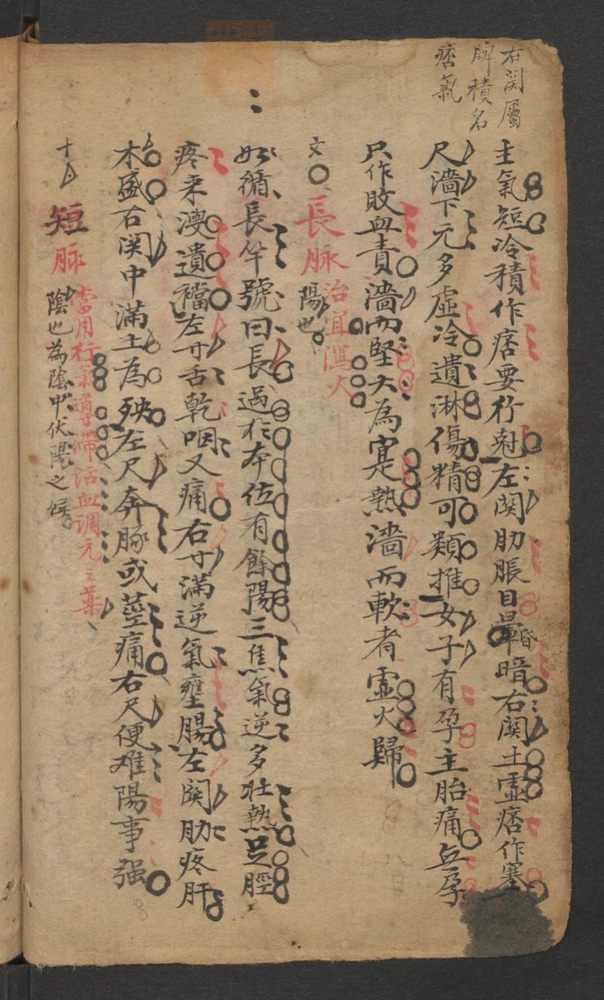 右関屬
脾積名
痞氣
主氣短冷積作痞要行尅左関肋脹目暈昏暗右関土虛痞作塞
尺濇下元多虛冷遺淋傷精可類推女子有孕主胎痛無孕
只作敗血責濇而堅大為寔熱濇而軟者虛火歸
文長脉治宜瀉火
陽也
如循長竿號曰長過於本位有餘陽三焦氣逆多壮熱足脛
疼来澳遺襠左寸舌乾咽又痛右寸滿逆氣壅腸左関肋疼肝
木盛右関中滿土為殃左尺奔豚或莖痛右尺便难陽事强
十短脉當用行氣導滯活血調元之薬
陰也為陰中伏陽之候